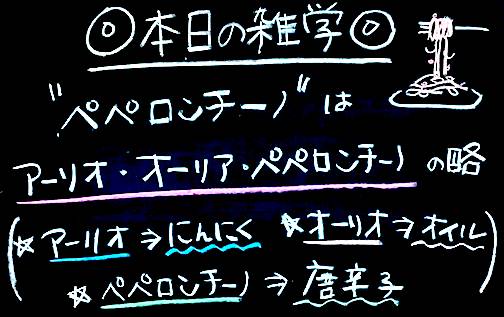 ◎本日の雑学◎
"ペペロンチーノ"は
アーリオ・オーリア・ペペロンチーノの略
(☆アーリオ⇒にんにく ☆オーリオ⇒オイル
☆ペペロンチーノ⇒唐辛子)